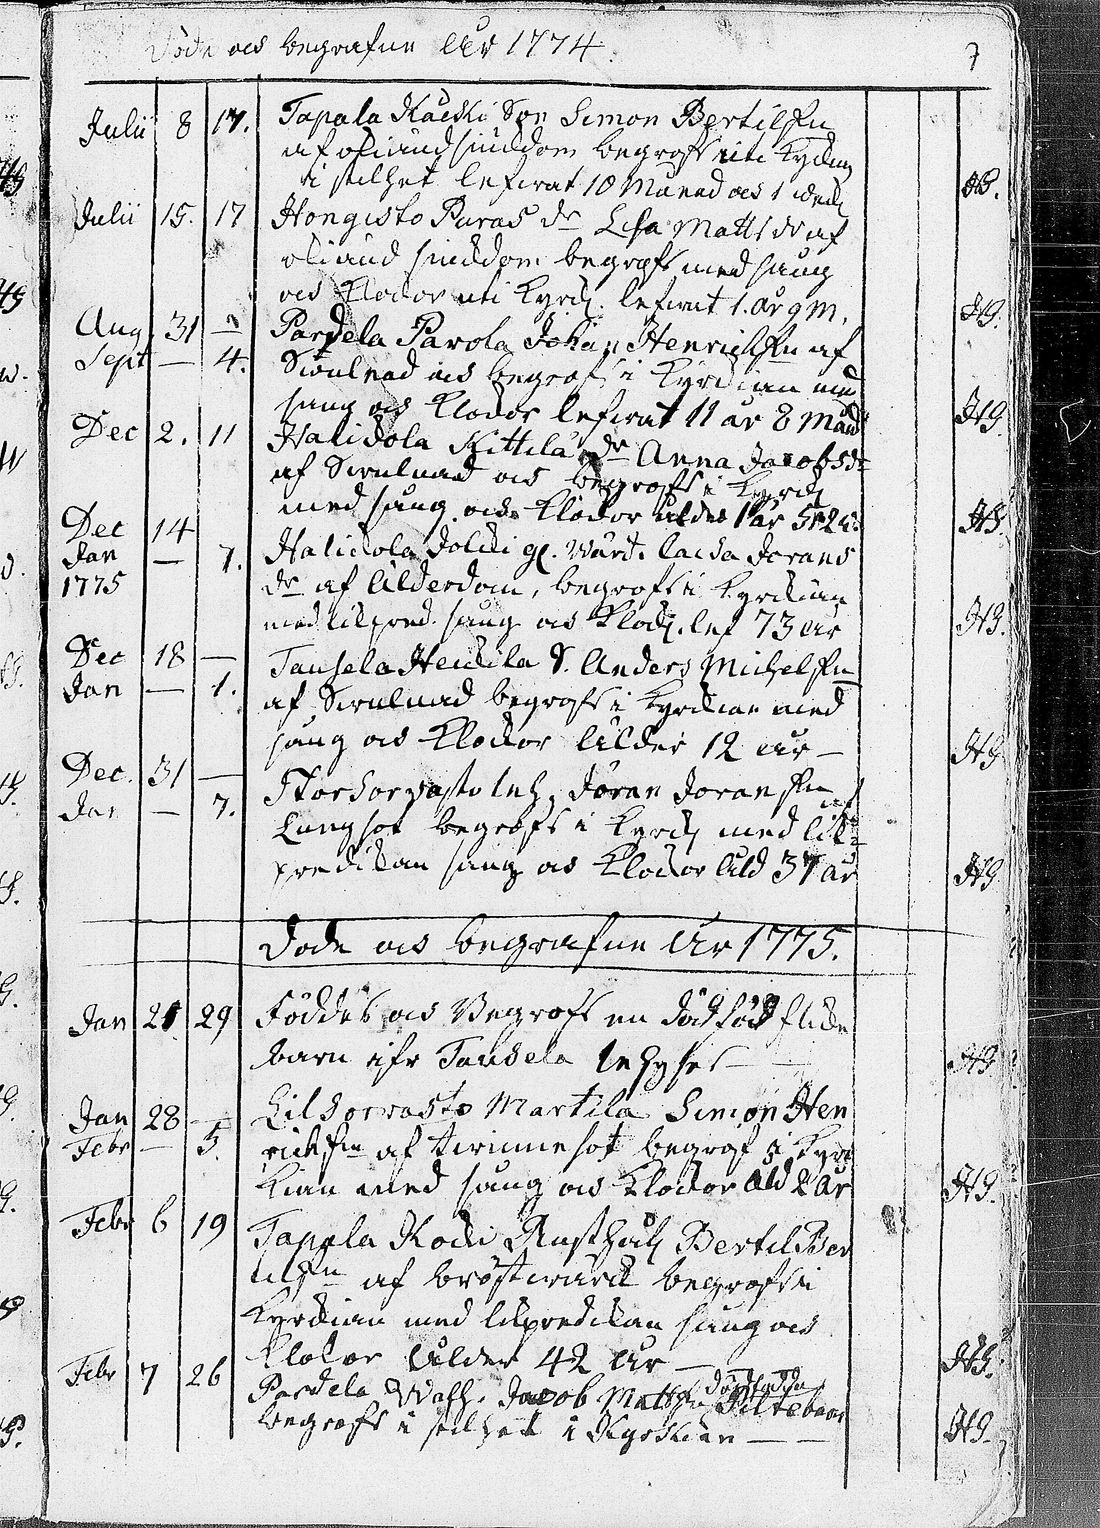 Döde och begrafne Åhr 1774.
7
Julii 8 17. Tapala Kacki Son Simon Bertilssn
af okiänd siukdom begrofs uti Kyrkan
i stilhet lefwat 10 Månad och 1 weck HG.
Julii 15. 17 Hongisto Paras dr Lisa Matts dr af
okiänd siukdom begrofs med sång
och Klockor uti Kyrck. lefwat 1. år 9 M. HG.
Aug 31 — Pardela Parola Johan Henrichssn af
Sept — 4. Swulnad och begrofs i Kyrckian med
sång och Klockor lefwat 11 år 8 Månd HG.
Dec 2. 11 Halickola Kittilä dr Anna Jacobsdr
af Swulnad och begrofs i Kyrck
med sång och Klockor ålder 1 år HG.
Dec 14
Jan — 1. Halickola Jolcki gl. Wärd. Jorans
1775 dr af Ålderdom, begrofs i Kyrckian
med likpred. sång och Klock. lef 73 år HG.
Dec 18 — Tansela Heickila S. Anders Michelssn
Jan — 1. af Swulnad begrofs i Kyrckian med
sång och Klockor Ålder 12 år — HG
Dec. 31 — Storsorvasto inh. Jöran Joransson af
Jan — 7. Lungsot begrofs i Kyrck med lik=
predickan sång och Klockor Åld 37 år HG
Döde och begrafne Åhr 1775.
Jan 21 29 Föddes och Begrofs en dödfödd flicke
barn ifr Tansela inhyses — HG
Jan 28 — Lilsorvasto Martila Simon Hen
Febr — 5. richssn af twinnesot begrof i Kyrc
kian med sång och Klockor Åld 2 år HG.
Febr 6 19 Tapala Kocki Rusthåll Bertil Ber
tilssn af bröstwärck begrofs i
Kyrckian med likpredickan sång och
Klockor Ålder 42 år — HG.
Febr 7 26 Pardela Math. Jacob Mattssn dödfödda Piltebarn
begrofs i stilhet i Kyrckian — — HG.